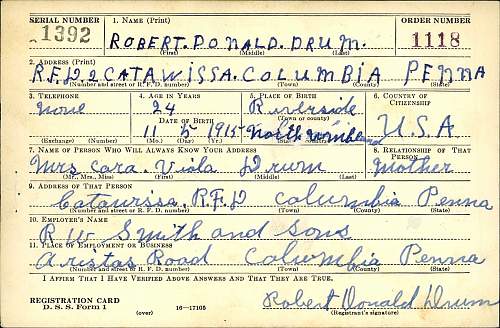 SERIAL NUMBER 1. NAME (Print) ORDER NUMBER
1392 ROBERT. DONALD. DRUM. 1118
(First) (Middle) (Last)
2. ADDRESS (Print)
R.F.D 2 CATAWISSA. COLUMBIA PENNA
(Number and street or R. F. D. number) (Town) (County) (State)
3. TELEPHONE 4. AGE IN YEARS 5. PLACE OF BIRTH 6. COUNTRY OF CITIZENSHIP
None 24 Riverside
DATE OF BIRTH (Town or county)
11 5 1915 Northumberland U.S.A.
(Exchange) (Number) (Mo.) (Day) (Yr.) (State or country)
7. NAME OF PERSON WHO WILL ALWAYS KNOW YOUR ADDRESS 8. RELATIONSHIP OF THAT PERSON
Mrs Cora. Viola Drum Mother
(Mr., Mrs., Miss) (First) (Middle) (Last)
9. ADDRESS OF THAT PERSON
Catawissa, R.F.D Columbia Penna
(Number and street or R. F. D. number) (Town) (County) (State)
10. EMPLOYER'S NAME
R W Smith and Sons
11. PLACE OF EMPLOYMENT OR BUSINESS
Aristas Road Columbia Penna
(Number and street or R. F. D. number) (Town) (County) (State)
I AFFIRM THAT I HAVE VERIFIED ABOVE ANSWERS AND THAT THEY ARE TRUE.
REGISTRATION CARD
D. S. S. Form 1 (over) 16—17105
Robert Donald Drum
(Registrant's signature)